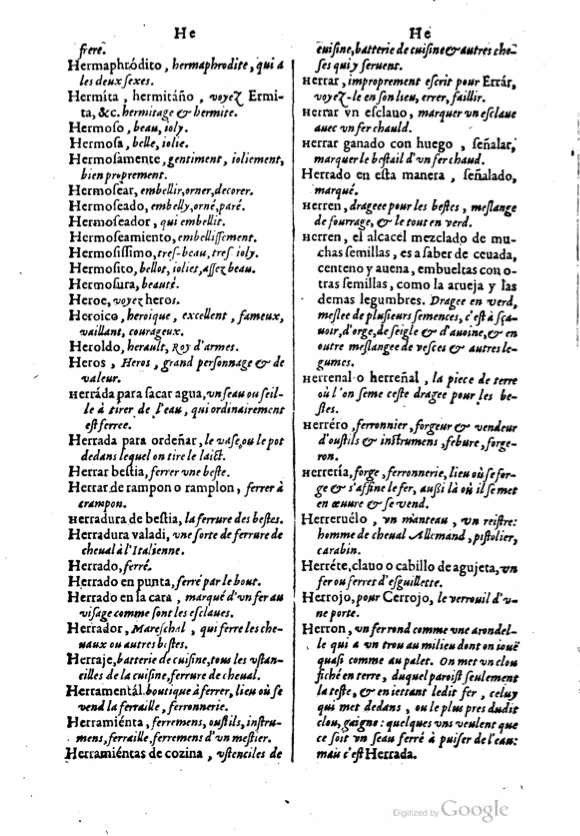 He
frere.
Hermaphródito, hermaphrodite, qui a
les deux sexes.
Hermíta, hermitáño, voyez Ermi-
ta, &c. hermitage & hermite.
Hermoſo, beau, ioly.
Hermoſa, belle, iolie.
Hermoſamente, gentiment, ioliement,
bien proprement.
Hermoſear, embellir, orner, decorer.
Hermoſeado, embelly, orné, paré.
Hermoſeador, qui embellit.
Hermoſeamiento, embelliſſement.
Hermoſiſſimo, tres-beau, tres ioly.
Hermoſito, bellot, iolict, aſſez beau.
Hermoſura, beauté.
Heroe, voyez heros.
Heroico, heroique, excellent, fameux,
vaillant, courageux.
Heroldo, herault, Roy d'armes.
Heros, Heros, grand perſonnage & de
valeur.
Herráda para ſacar agua, vn ſeau ou ſeil-
le à tirer de l'eau, qui ordinairement
eſt ferree.
Herrada para ordeñar, le vaſe, ou le pot
dedans lequel on tire le laict.
Herrar beſtia, ferrer vne beſte.
Herrar de rampon o ramplon, ferrer à
crampon.
Herradura de beſtia, la ferrure des beſtes.
Herradura valadi, vne ſorte de ferrure de
cheual à l'Italienne.
Herrado, ferré.
Herrado en punta, ferré par le bout.
Herrado en ſa cara, marqué d'vn fer au
viſage comme ſont les eſclaues.
Herrador, Mareſchal, qui ferre les che-
uaux ou autres beſtes.
Herraje, batterie de cuiſine, tous les vſtan-
cilles de la cuiſine, ferrure de cheual.
Herramentál. boutique à ferrer, lieu où ſe
vend la ferraille, ferronnerie.
Herramiénta, ferremens, ouſtils, inſtru-
mens, ferraille, ferremens d'vn meſtier.
Herramiéntas de cozina, vſtenciles de
He
cuiſine, batterie de cuiſine & autres cho-
ſes qui y ſeruent.
Herrar, improprement eſcrit pour Errár,
voyez-le en ſon lieu, errer, faillir.
Herrar vn eſclauo, marquer vn eſclaue
auec vn fer chauld.
Herrar ganado con huego, ſeñalar,
marquer le beſtail d'vn fer chaud.
Herrado en eſta manera, ſeñalado,
marqué.
Herren, drageee pour les beſtes, meſlange
de fourrage, & le tout en verd.
Herren, el alcacél mezclado de mu-
chas ſemillas, es a ſaber de ceuada,
centeno y auena, embueltas con o-
tras ſemillas, como la arueja y las
demas legumbres. Dragee en verd,
meſlee de pluſieurs ſemences, c'eſt à ſça-
uoir, d'orge, de ſeigle & d'auoine, & en
outre meſlangee de veſces & autres le-
gumes.
Herrenal o herreñal, la piece de terre
où l'on ſeme ceſte dragee pour les be-
ſtes.
Herréro, ferronnier, forgeur & vendeur
d'ouſtils & inſtrumens, febure, forge-
ron.
Herrería, forge, ferronnerie, lieu où ſe for-
ge & s'affine le fer, auſſi là où il ſe met
en œuure & ſe vend.
Herreruélo, vn manteau, vn reiſtre:
homme de cheual Allemand, piſtolier,
carabin.
Herréte, clauo o cabillo de agujeta, vn
fer ou ferret d'eſguillette.
Herrojo, pour Cerrojo, le verrouil d'v-
ne porte.
Herron, vn fer rond comme vne arondel-
le qui a vn trou au milieu dont on iouë
quaſi comme au palet. On met vn clou
fiché en terre, duquel paroiſt ſeulement
la teſte, & en iettant ledit fer, celuy
qui met dedans, ou le plus pres dudit
clou, gaigne: quelques vns veulent que
ce ſoit vn ſeau ferré à puiſer de l'eau:
mais c'eſt Herrada.
Digitized by Google